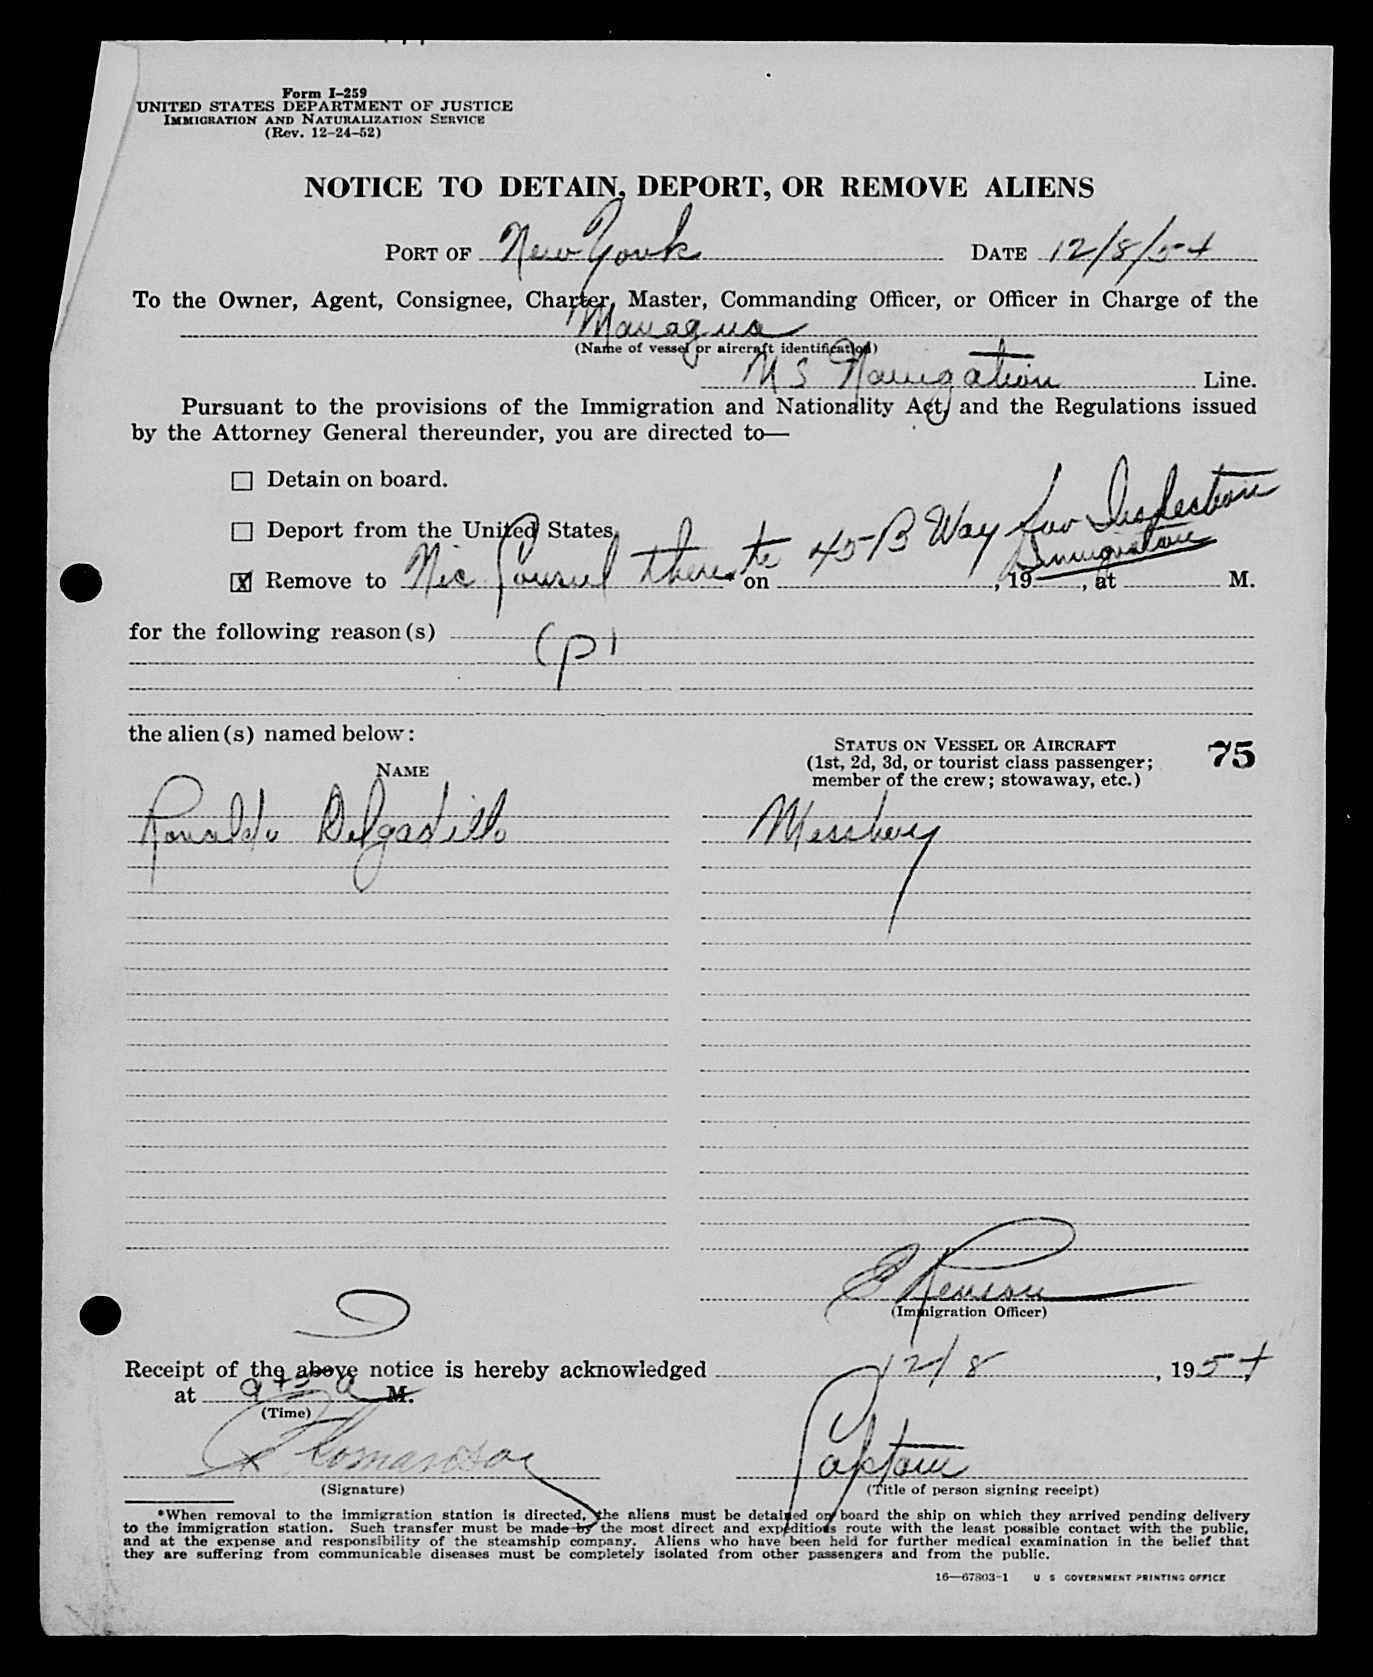 Form I-259
UNITED STATES DEPARTMENT OF JUSTICE
IMMIGRATION AND NATURALIZATION SERVICE
(Rev. 12-24-52)
NOTICE TO DETAIN, DEPORT, OR REMOVE ALIENS
PORT OF New York DATE 12/8/54
To the Owner, Agent, Consignee, Charter, Master, Commanding Officer, or Officer in Charge of the
Managua
(Name of vessel or aircraft identification)
Navigation Line.
Pursuant to the provisions of the Immigration and Nationality Act, and the Regulations issued
by the Attorney General thereunder, you are directed to—
Detain on board.
Deport from the United States.
X Remove to Nic Consul then to on 45 B Way for Inspection Immigration, 19 , at M.
for the following reason(s) (P)
the alien(s) named below:
75
NAME
STATUS ON VESSEL OR AIRCRAFT
(1st, 2d, 3d, or tourist class passenger;
member of the crew; stowaway, etc.)
Ronaldo Delgadillo Messboy
(Immigration Officer)
Receipt of the above notice is hereby acknowledged 12/8, 1954
at M.
(Time)
Captain
(Signature) (Title of person signing receipt)
*When removal to the immigration station is directed, the aliens must be detained on board the ship on which they arrived pending delivery
to the immigration station. Such transfer must be made by the most direct and expeditious route with the least possible contact with the public,
and at the expense and responsibility of the steamship company. Aliens who have been held for further medical examination in the belief that
they are suffering from communicable diseases must be completely isolated from other passengers and from the public.
16—67803-1 U S GOVERNMENT PRINTING OFFICE